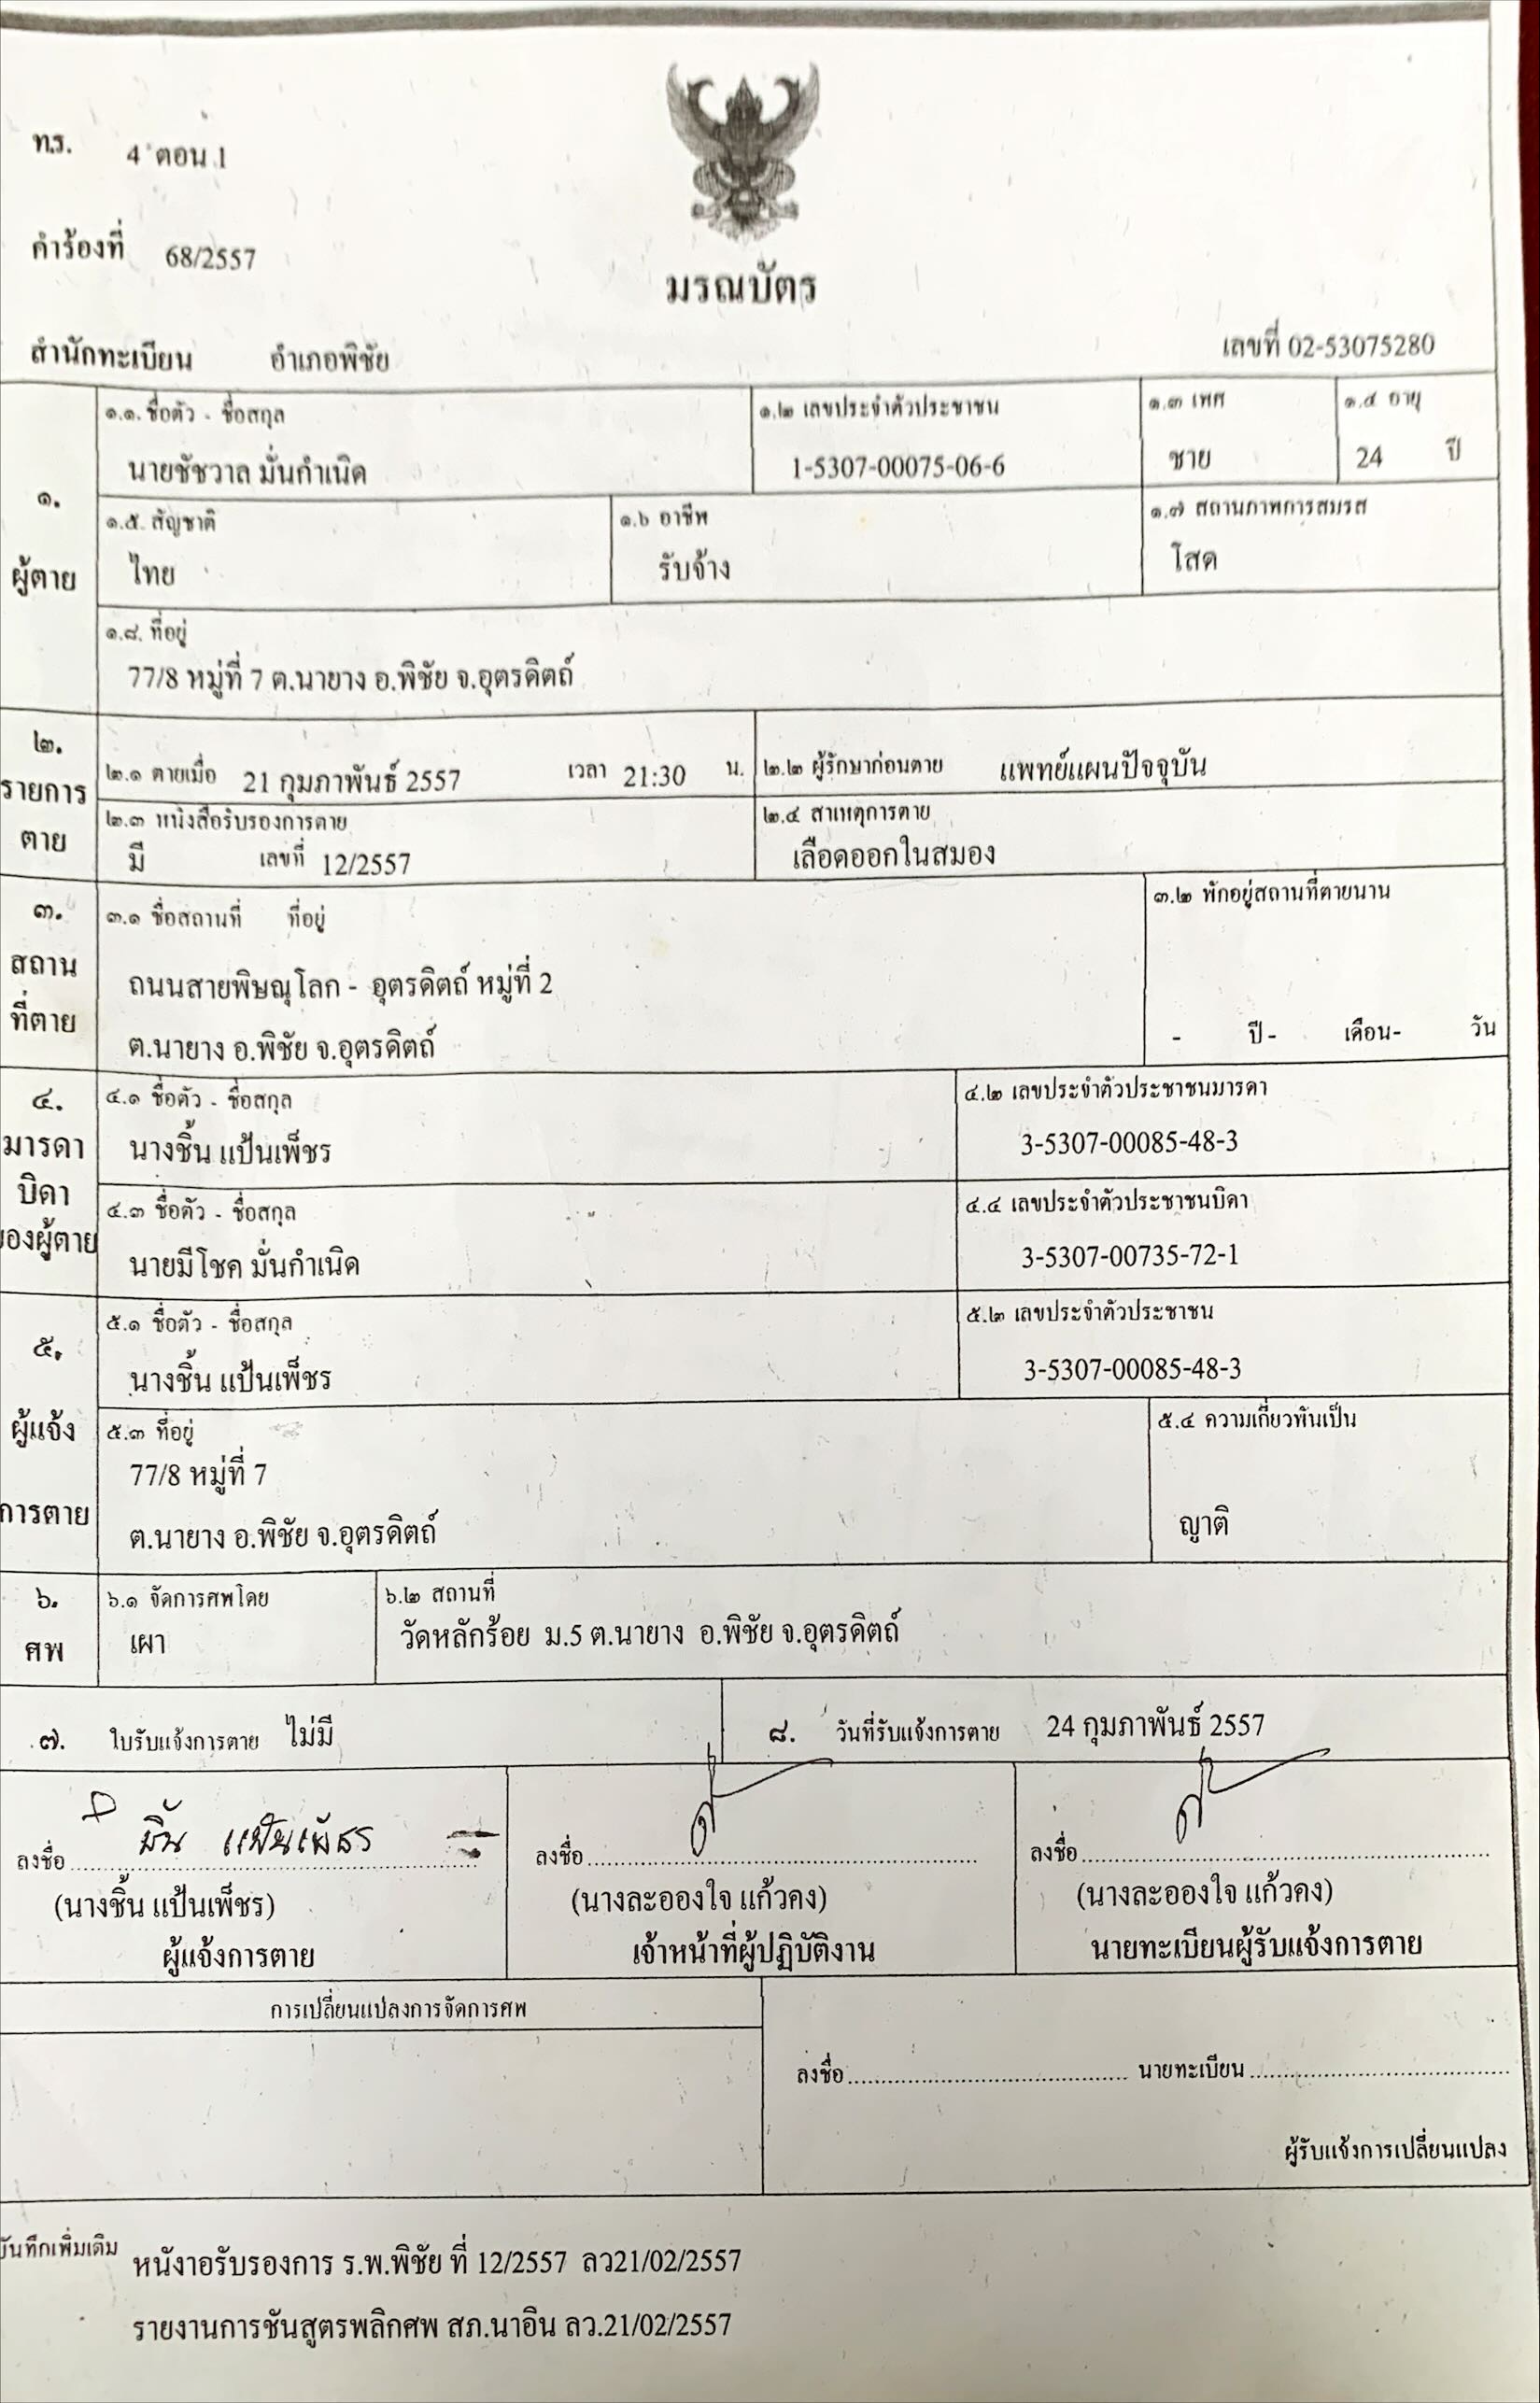 ท.ร. 4 ตอน 1
คำร้องที่ 68/2557
มรณบัตร
สำนักทะเบียน อำเภอพิชัย เลขที่ 02-53075280
๑. ผู้ตาย
๑.๑. ชื่อตัว - ชื่อสกุล ๑.๒ เลขประจำตัวประชาชน ๑.๓ เพศ ๑.๔ อายุ
นายชัชวาล มั่นกำเนิด 1-5307-00075-06-6 ชาย 24 ปี
๑.๕. สัญชาติ ๑.๖ อาชีพ ๑.๗ สถานภาพการสมรส
ไทย รับจ้าง โสด
๑.๘. ที่อยู่
77/8 หมู่ที่ 7 ต.นายาง อ.พิชัย จ.อุตรดิตถ์
๒. รายการตาย
๒.๑ ตายเมื่อ 21 กุมภาพันธ์ 2557 เวลา 21:30 น. ๒.๒ ผู้รักษาก่อนตาย แพทย์แผนปัจจุบัน
๒.๓ หนังสือรับรองการตาย ๒.๔ สาเหตุการตาย
มี เลขที่ 12/2557 เลือดออกในสมอง
๓. สถานที่ตาย
๓.๑ ชื่อสถานที่ ที่อยู่ ๓.๒ พักอยู่สถานที่ตายนาน
ถนนสายพิษณุโลก - อุตรดิตถ์ หมู่ที่ 2
ต.นายาง อ.พิชัย จ.อุตรดิตถ์ - ปี - เดือน- วัน
๔. มารดา บิดา ของผู้ตาย
๔.๑ ชื่อตัว - ชื่อสกุล ๔.๒ เลขประจำตัวประชาชนมารดา
นางชิ้น แป้นเพ็ชร 3-5307-00085-48-3
๔.๓ ชื่อตัว - ชื่อสกุล ๔.๔ เลขประจำตัวประชาชนบิดา
นายมีโชค มั่นกำเนิด 3-5307-00735-72-1
๕. ผู้แจ้งการตาย
๕.๑ ชื่อตัว - ชื่อสกุล ๕.๒ เลขประจำตัวประชาชน
นางชิ้น แป้นเพ็ชร 3-5307-00085-48-3
๕.๓ ที่อยู่ ๕.๔ ความเกี่ยวพันเป็น
77/8 หมู่ที่ 7
ต.นายาง อ.พิชัย จ.อุตรดิตถ์ ญาติ
๖. ศพ
๖.๑ จัดการศพโดย ๖.๒ สถานที่
เผา วัดหลักร้อย ม.5 ต.นายาง อ.พิชัย จ.อุตรดิตถ์
๗. ใบรับแจ้งการตาย ไม่มี ๘. วันที่รับแจ้งการตาย 24 กุมภาพันธ์ 2557
ลงชื่อ ชิ้น แป้นเพ็ชร ลงชื่อ ลงชื่อ
(นางชิ้น แป้นเพ็ชร) (นางละอองใจ แก้วคง) (นางละอองใจ แก้วคง)
ผู้แจ้งการตาย เจ้าหน้าที่ผู้ปฏิบัติงาน นายทะเบียนผู้รับแจ้งการตาย
การเปลี่ยนแปลงการจัดการศพ
ลงชื่อ นายทะเบียน
ผู้รับแจ้งการเปลี่ยนแปลง
บันทึกเพิ่มเติม หนังาอรับรองการ ร.พ.พิชัย ที่ 12/2557 ลว21/02/2557
รายงานการชันสูตรพลิกศพ สภ.นาอิน ลว.21/02/2557